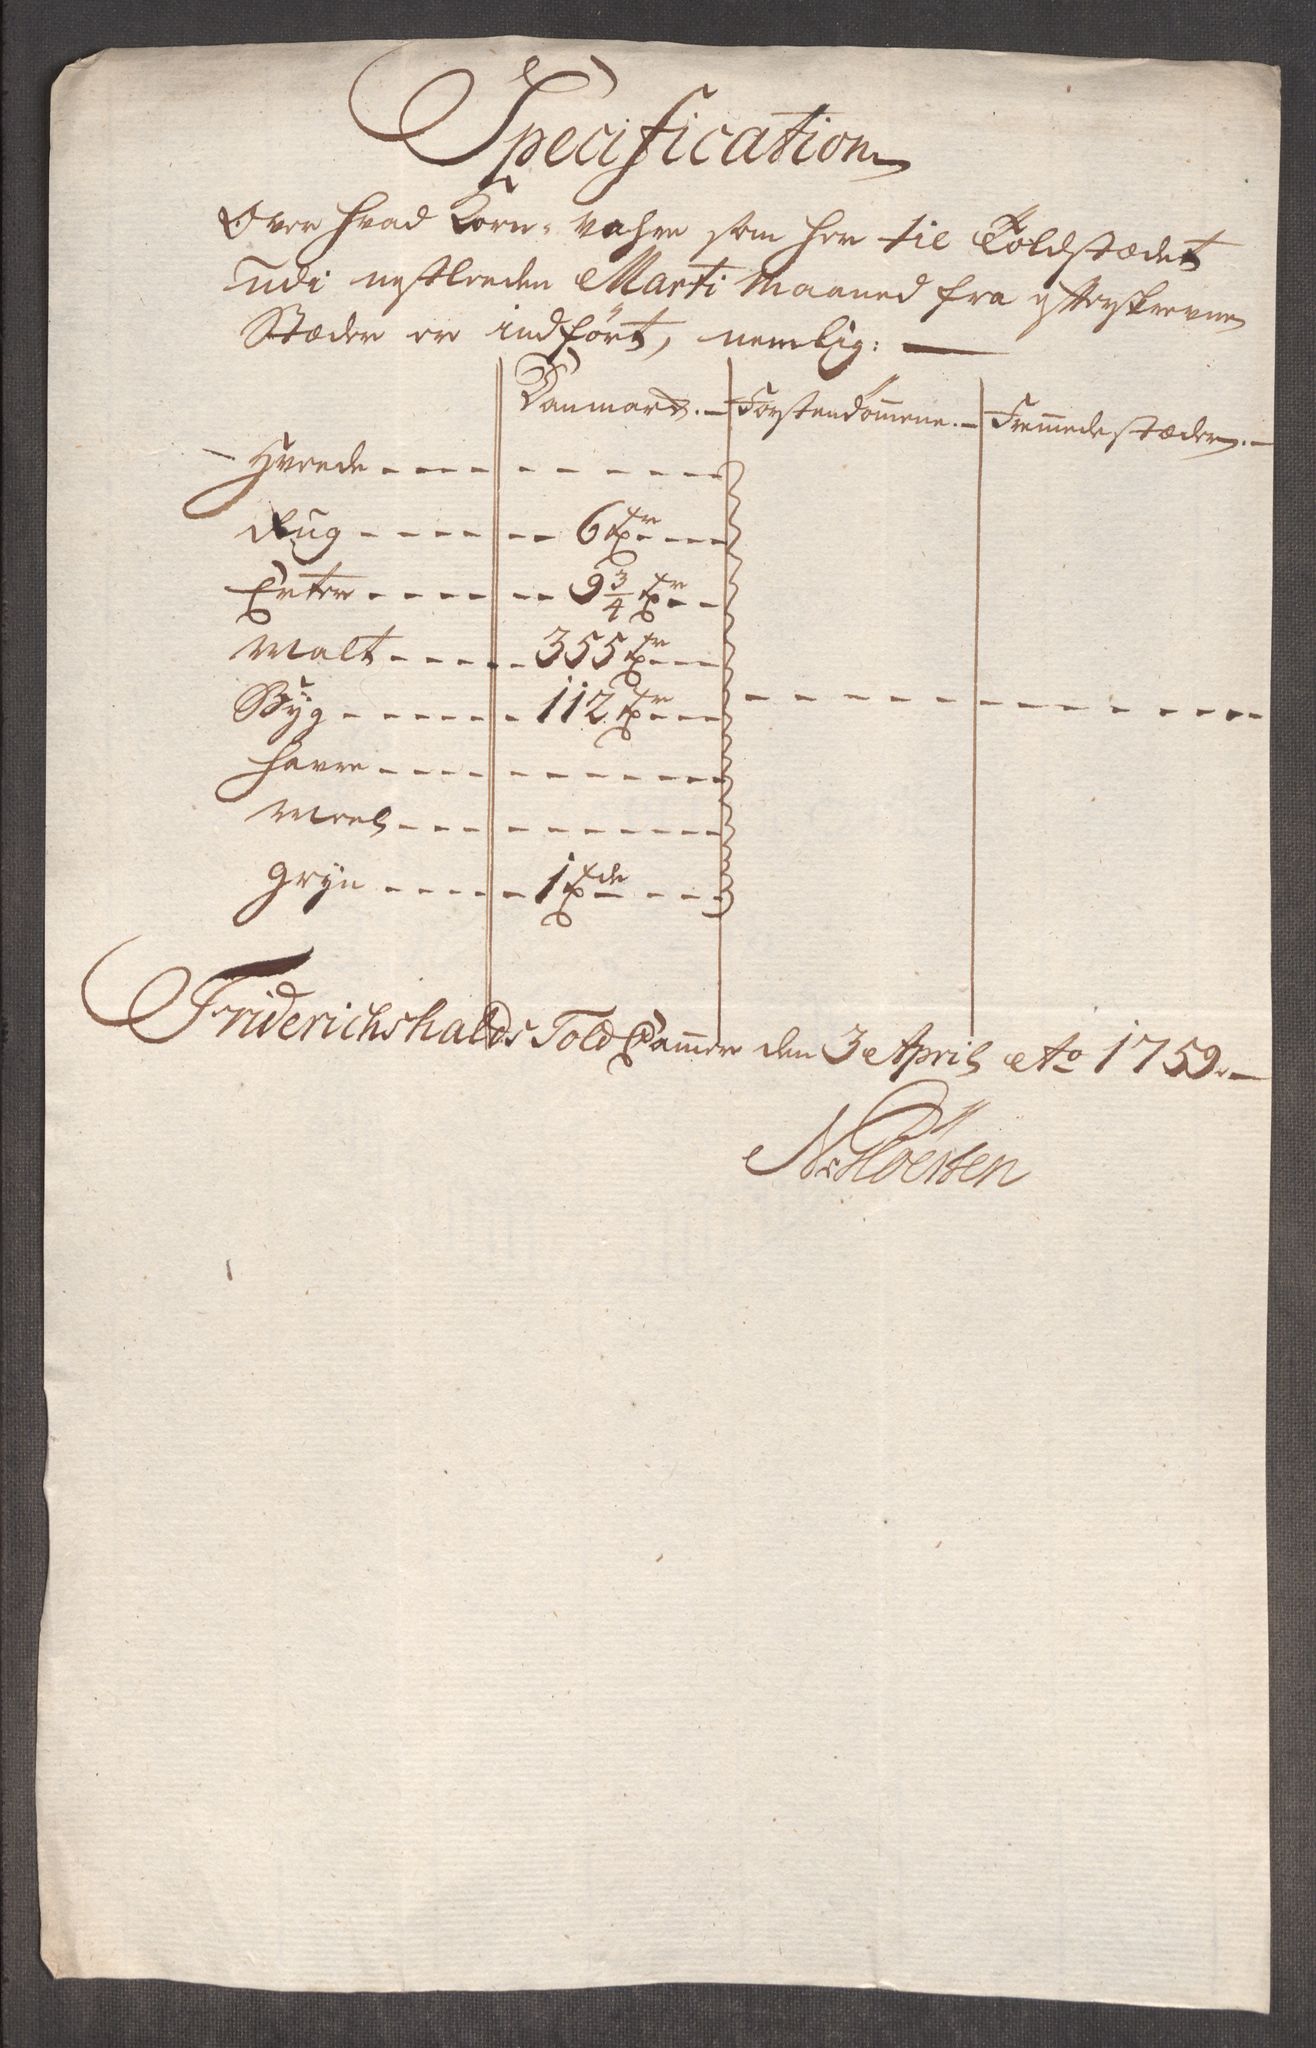 Specification
Over hvad Korn-Vahre som her til Toldstædet
udi nestleeden Marti Maaned fra efterskrevne
Stæder er indført, nemlig:
Danmark. Førstendömmene. Fremmede stæder.
Hvede
Rug 6 Tr
Erter 9 3/4 Tr
Malt 355 Tr
Byg 112 Tr
Havre
Meel
Gryn 1 Tde
Friderichshalds Told Cammer den 3 April Ao 1759.